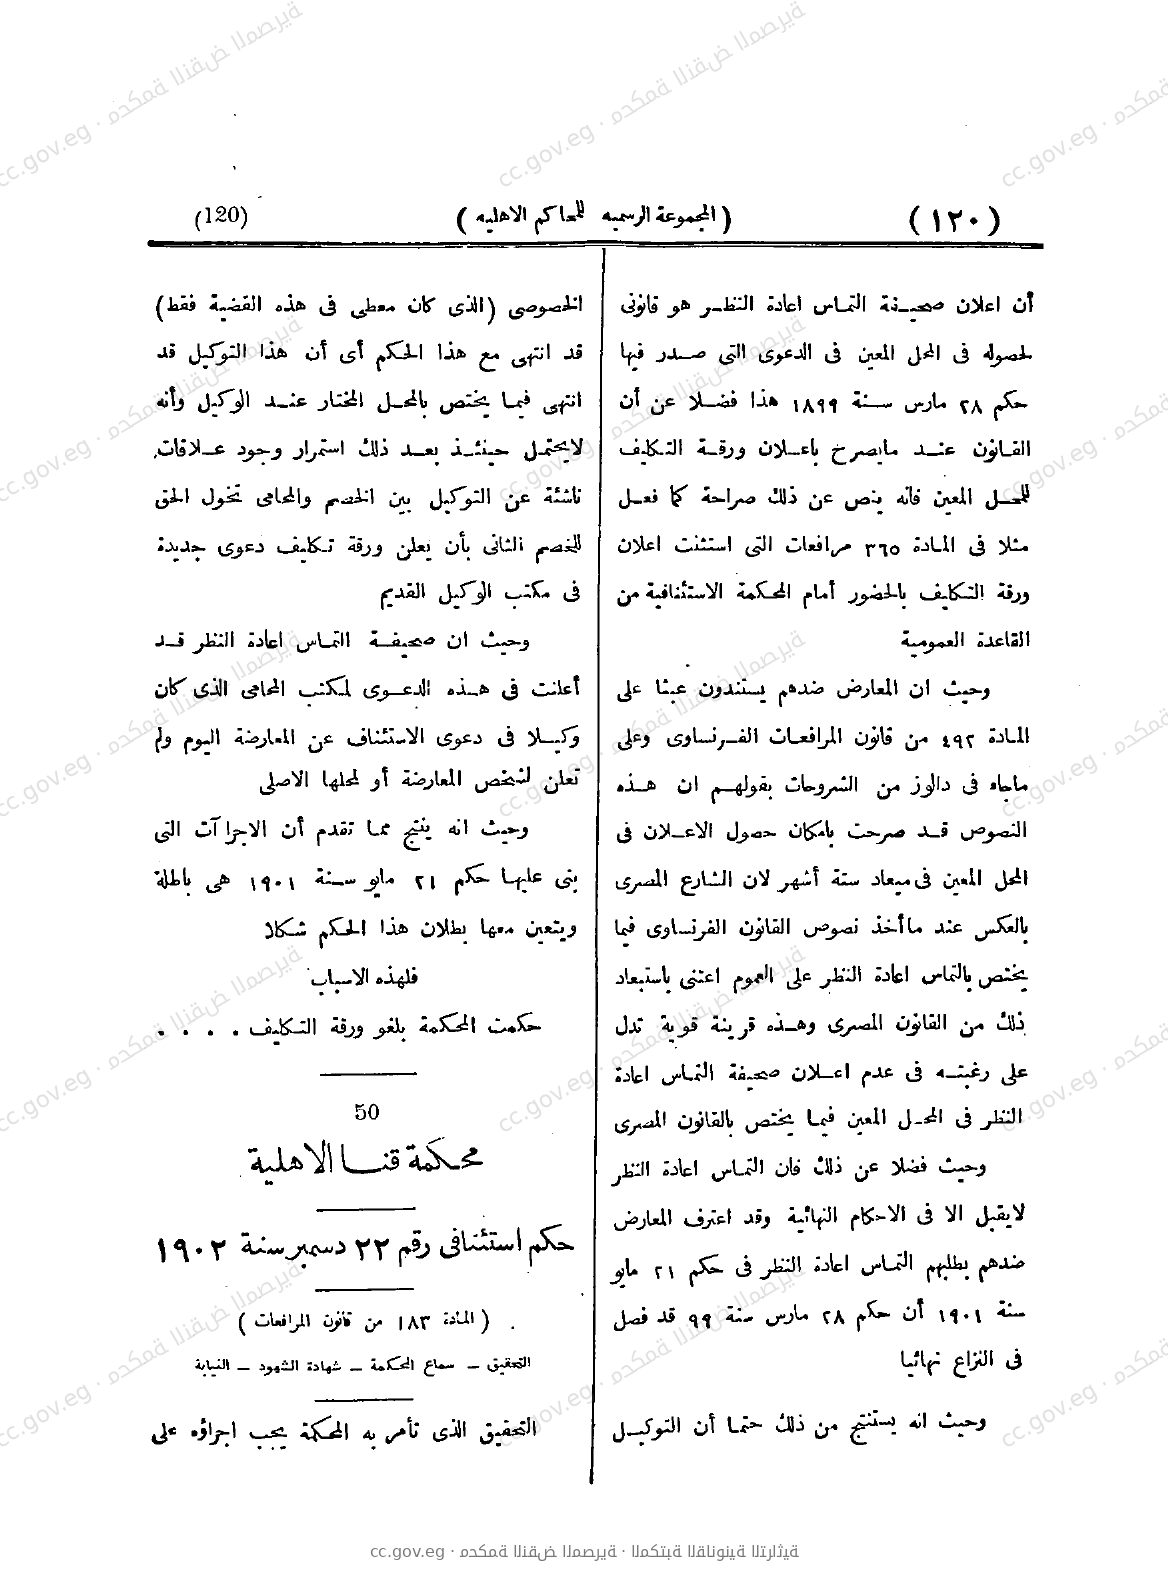 (١٢٠) (المجموعة الرسميه للمحاكم الاهليه) (120)
أن اعلان صحيفة التماس اعادة النظر هو قانونى
لحصوله فى المحل المعين فى الدعوى التى صدر فيها
حكم ٢٨ مارس سنة ١٨٩٩ هذا فضلا عن أن
القانون عند مايصرح باعلان ورقة التكليف
للمحل المعين فانه ينص عن ذلك صراحة كما فعل
مثلا فى المادة ٣٦٥ مرافعات التى استثنت اعلان
ورقة التكليف بالحضور أمام المحكمة الاستئنافية من
القاعدة العمومية
وحيث ان المعارض ضدهم يستندون عبثا على
المادة ٤٩٢ من قانون المرافعات الفرنساوى وعلى
ماجاء فى دالوز من الشروحات بقولهم ان هذه
النصوص قد صرحت بامكان حصول الاعلان فى
المحل المعين فى ميعاد ستة أشهر لان الشارع المصرى
بالعكس عند ماأخذ نصوص القانون الفرنساوى فيما
يختص بالتماس اعادة النظر على العموم اعتنى باستبعاد
ذلك من القانون المصرى وهذه قرينة قوية تدل
على رغبته فى عدم اعلان صحيفة التماس اعادة
النظر فى المحل المعين فيما يختص بالقانون المصرى
وحيث فضلا عن ذلك فان التماس اعادة النظر
لايقبل الا فى الاحكام النهائية وقد اعترف المعارض
ضدهم بطلبهم التماس اعادة النظر فى حكم ٢١ مايو
سنة ١٩٠١ أن حكم ٢٨ مارس سنة ٩٩ قد فصل
فى النزاع نهائيا
وحيث انه يستنتج من ذلك حتما أن التوكيل
الخصوصى (الذى كان معطى فى هذه القضية فقط)
قد انتهى مع هذا الحكم أى أن هذا التوكيل قد
انتهى فيما يختص بالمحل المختار عند الوكيل وأنه
لايحتمل حينئذ بعد ذلك استمرار وجود علاقات
ناشئة عن التوكيل بين الخصم والمحامى تخول الحق
للخصم الثانى بأن يعلن ورقة تكليف دعوى جديدة
فى مكتب الوكيل القديم
وحيث ان صحيفة التماس اعادة النظر قد
أعلنت فى هذه الدعوى لمكتب المحامى الذى كان
وكيلا فى دعوى الاستئناف عن المعارضة اليوم ولم
تعلن لشخص المعارضة أو لمحلها الاصلى
وحيث انه ينتج مما تقدم أن الاجراآت التى
بنى عليها حكم ٢١ مايو سنة ١٩٠١ هى باطلة
ويتعين معها بطلان هذا الحكم شكلا
فلهذه الاسباب
حكمت المحكمة بلغو ورقة التكليف . . . .
50
محكمة قنا الاهلية
حكم استئنافى رقم ٢٢ دسمبر سنة ١٩٠٢
(المادة ١٨٣ من قانون المرافعات)
التحقيق – سماع المحكمة – شهادة الشهود – النيابة
التحقيق الذى تأمر به المحكمة يجب اجراؤه على
cc.gov.eg · محكمة النقض المصرية · المكتبة القانونية التراثية